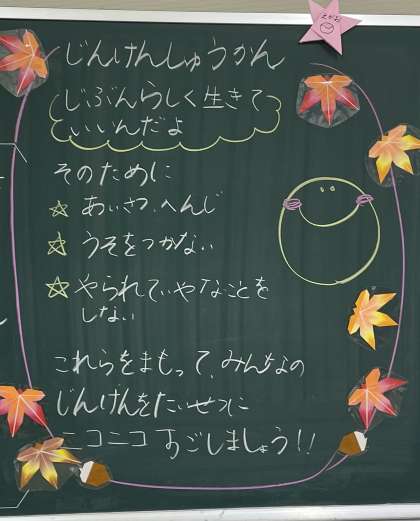 えがお
じんけんしゅうかん
じぶんらしく生きて
いいんだよ
そのために
☆ あいさつ、へんじ
☆ うそをつかない
☆ やられていやなことを
しない
これらをまもって、みんなの
じんけんをたいせつに
ニコニコ すごしましょう!!